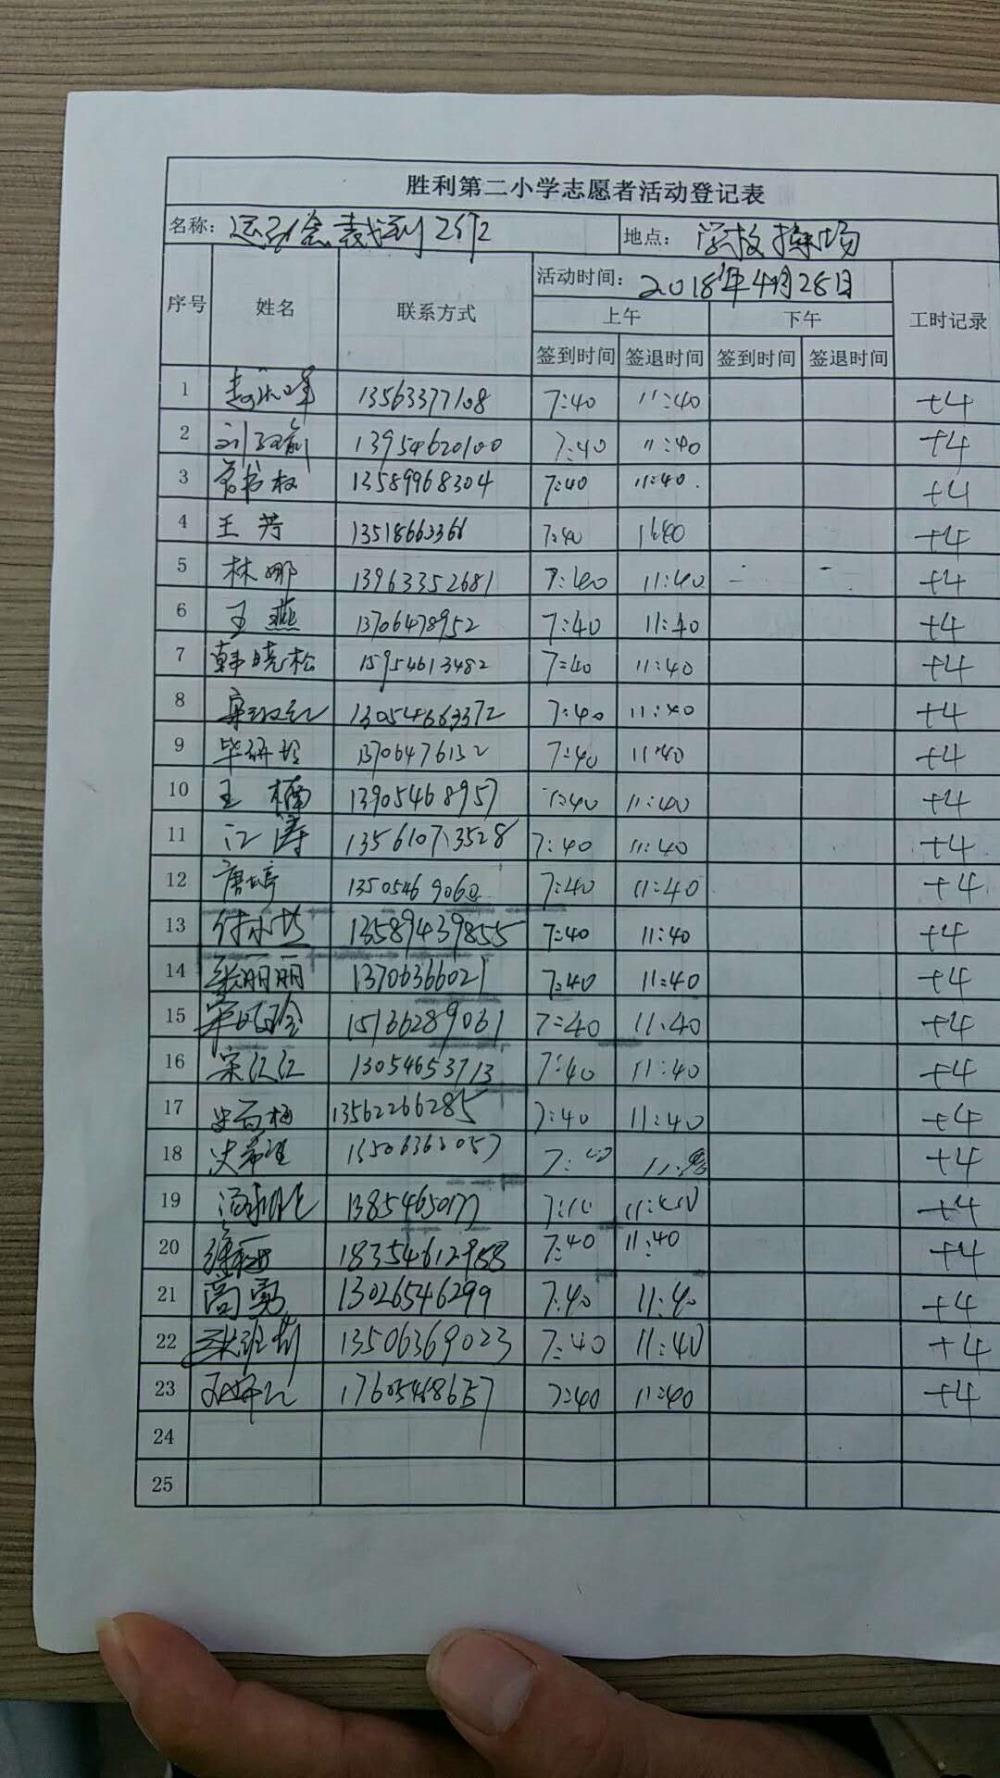 胜利第二小学志愿者活动登记表
名称: 运动会裁判 地点: 学校操场
序号 姓名 联系方式 活动时间: 2018年4月28日 工时记录
上午 下午
签到时间 签退时间 签到时间 签退时间
1 13563377108 7:40 11:40 +4
2 13954620100 7:40 11:40 +4
3 13589968304 7:40 11:40 +4
4 王芳 13518663366 7:40 11:40 +4
5 林娜 13963352681 7:40 11:40 +4
6 王燕 13706478952 7:40 11:40 +4
7 韩晓松 15954613482 7:40 11:40 +4
8 13054663372 7:40 11:40 +4
9 13706476132 7:40 11:40 +4
10 王楠 13905468957 7:40 11:40 +4
11 江涛 13561073528 7:40 11:40 +4
12 唐婷 13505469060 7:40 11:40 +4
13 13589439855 7:40 11:40 +4
14 张丽丽 13706366021 7:40 11:40 +4
15 15166289061 7:40 11:40 +4
16 宋红红 13054653713 7:40 11:40 +4
17 13562266285 7:40 11:40 +4
18 7:40 +4
19 +4
20 18354612958 7:40 11:40 +4
21 高勇 13026546299 7:40 11:40 +4
22 13506369023 7:40 11:40 +4
23 17605468657 7:40 11:40 +4
24
25